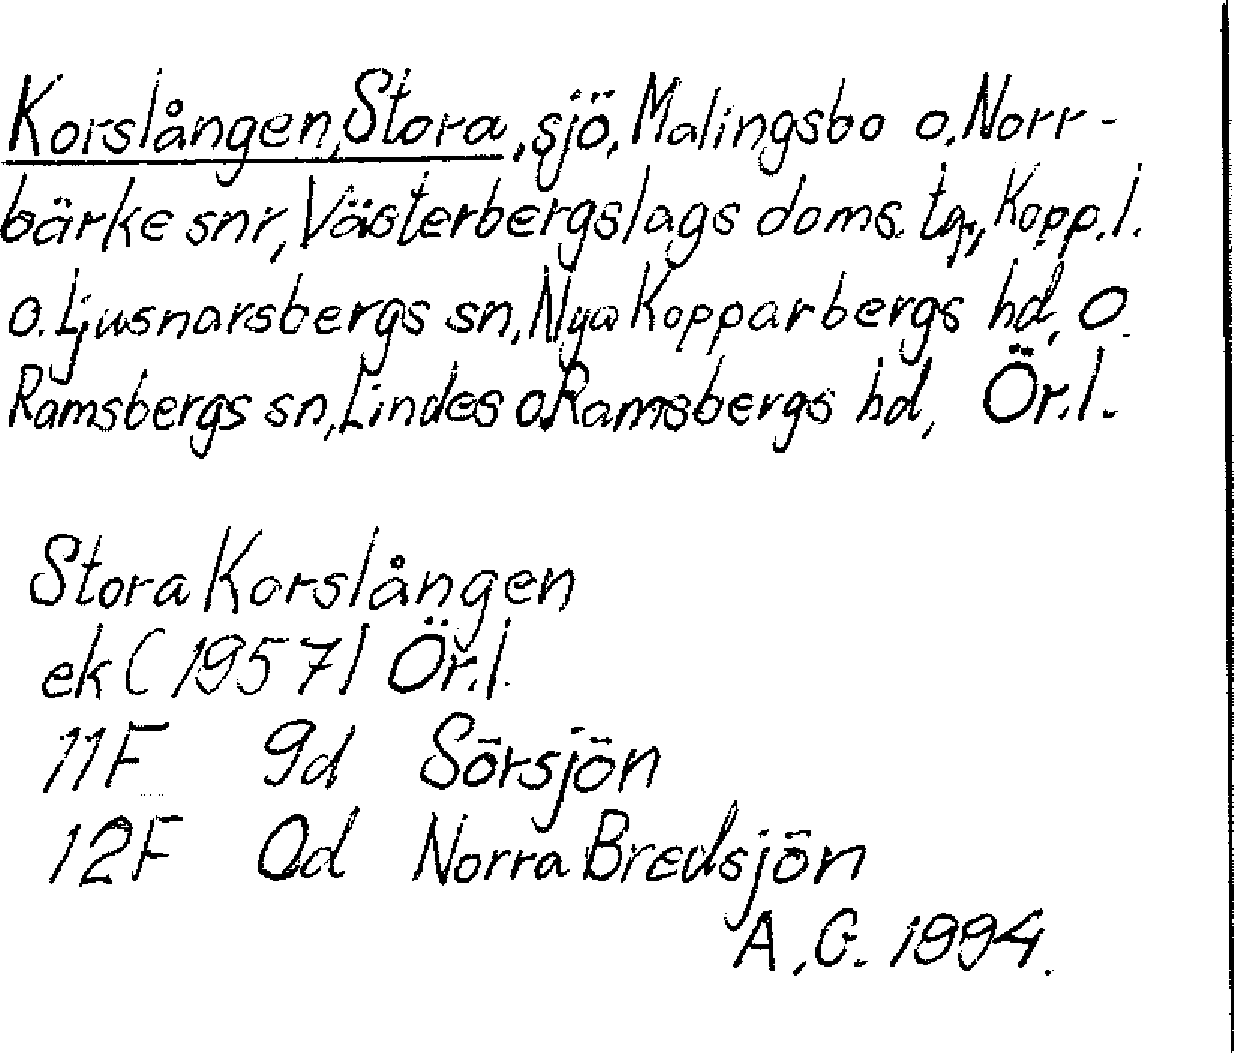 Korslången, Stora, sjö, Malingsbo o. Norr-
bärke snr, Västerbergslags doms. tg, Kopp. l.
o. Ljusnarsbergs sn, Nya Kopparbergs hd, o.
Ramsbergs sn, Lindes o. Ramsbergs hd, Ör. l.
Stora Korslången
ek (1957) Ör. l.
11F 9d Sörsjön
12F 0d Norra Bredsjön
A. G. 1994.